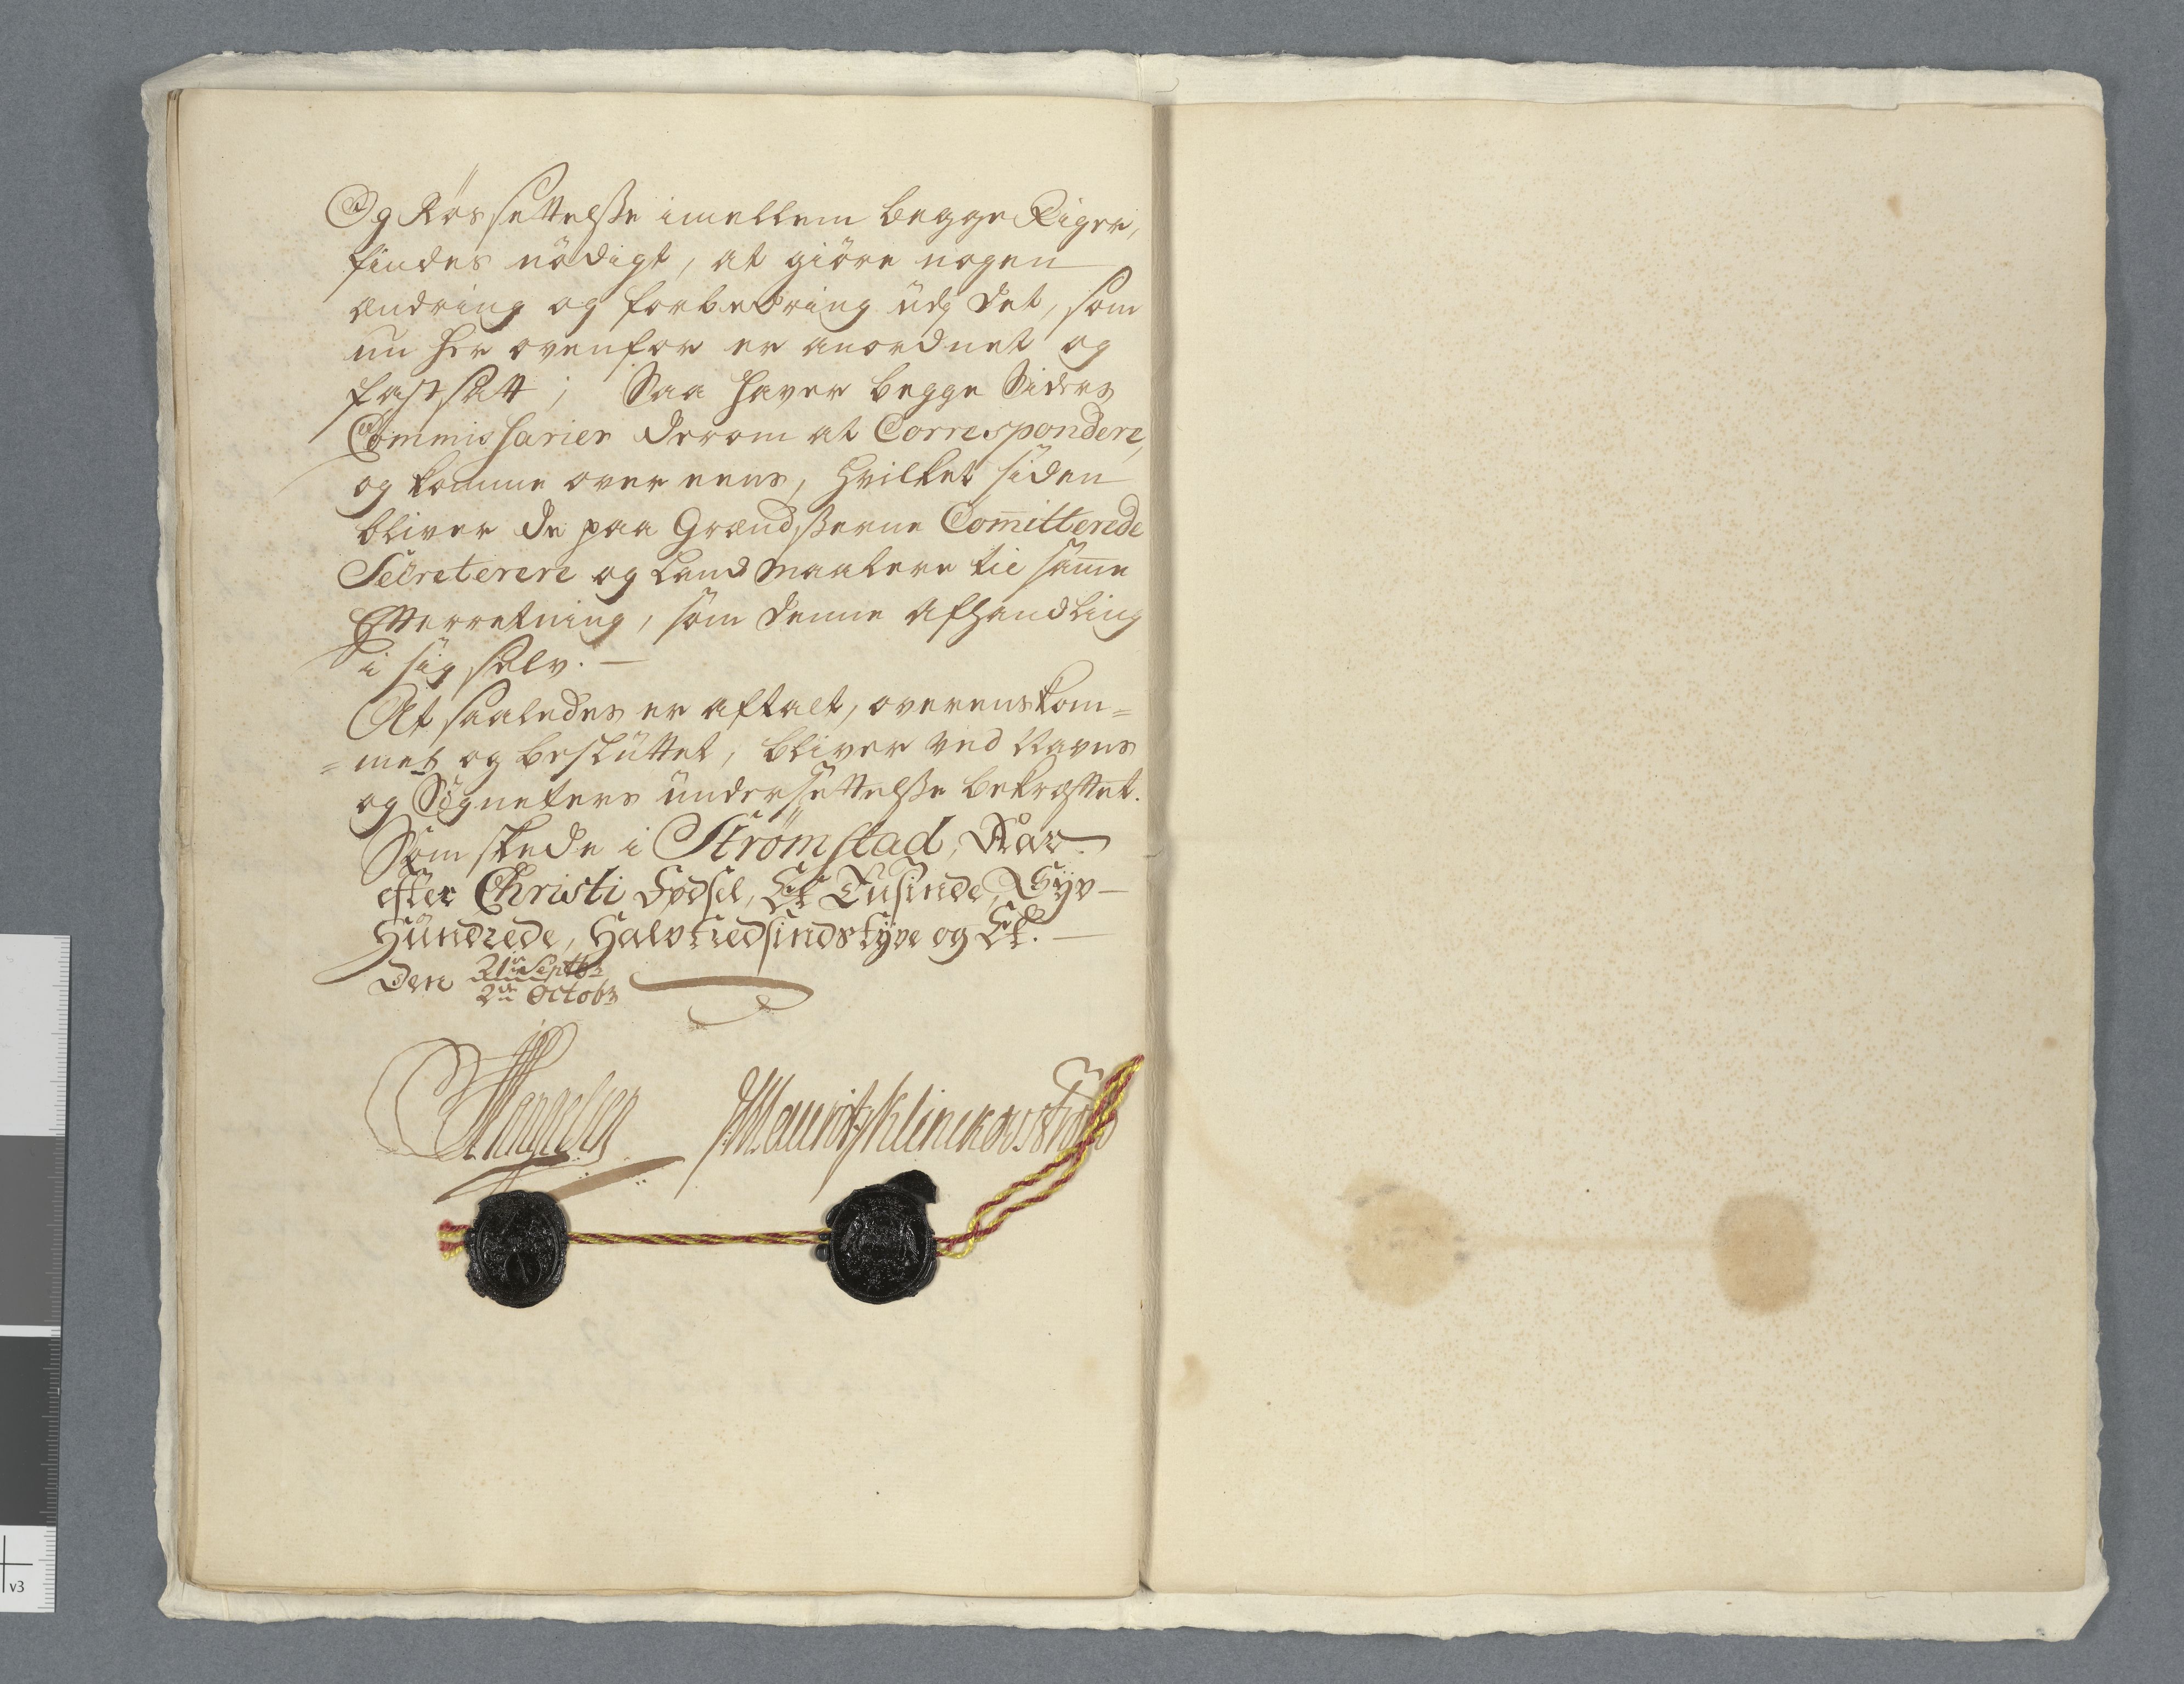 Og Rös settelsse imellem begge Riger,
findes nödigt, at giöre nogen
ændring og forbedring udj det, som
nu her ovenfor er anordnet og
fastsatt; Saa haver begge Siders
Commissarier derom at Correspondere,
og komme over eens, hvilket siden
bliver de paa Grændsserne Com̅itterede
Secreterere og Land Maalere til sam̅e
Efterretning, som denne Afhandling
i sig selv. —
At saaledes er aftalt, overenskom=
=met og besluttet, bliver ved Navns
og Signeters undersettelsse bekræftet.
Som skede i Strømstad, Aar
efter Christi Fødsel, Et Tusinde, Syv-
Hundrede, Halvtredsindstyve og Et. —
Den 21de Septbr
2de Octobr
Mauritz Klinckowström
v3